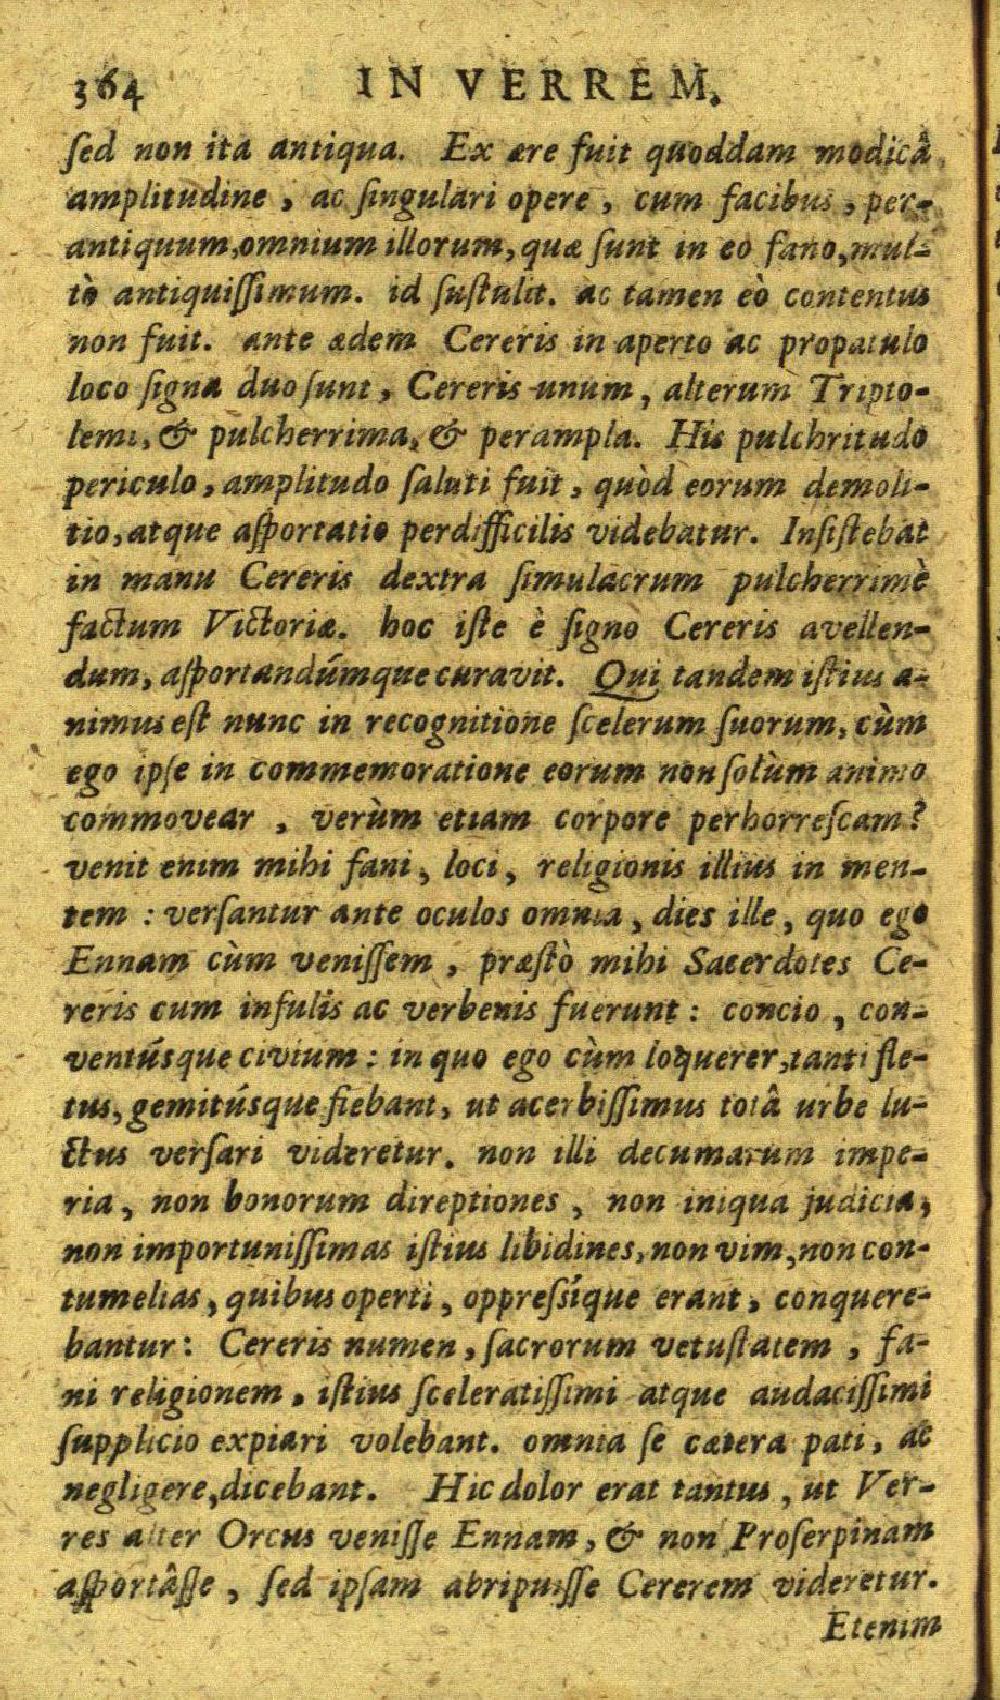 364 IN VERREM.
ſed non ita antiqua. Ex ære fuit quoddam modicâ
amplitudine, ac ſingulari opere, cum facibus, per-
antiquum, omnium illorum, quæ ſunt in eo fano, mul-
tò antiquiſſimum. id ſuſtulit. ac tamen eò contentus
non fuit. ante ædem Cereris in aperto ac propatulo
loco ſigna duo ſunt, Cereris unum, alterum Tripto-
lemi, & pulcherrima, & perampla. His pulchritudo
periculo, amplitudo ſaluti fuit, quòd eorum demoli-
tio, atque aſportatio perdifficilis videbatur. Inſiſtebat
in manu Cereris dextra ſimulacrum pulcherrimè
factum Victoriæ. hoc iſte è ſigno Cereris avellen-
dum, aſportandúmque curavit. Qui tandem iſtius a-
nimus eſt nunc in recognitione ſcelerum ſuorum, cùm
ego ipſe in commemoratione eorum non ſolùm animo
commovear, verùm etiam corpore perhorreſcam?
venit enim mihi fani, loci, religionis illius in men-
tem: verſantur ante oculos omnia, dies ille, quo ego
Ennam cùm veniſſem, præſtò mihi Sacerdotes Ce-
reris cum infulis ac verbenis fuerunt: concio, con-
ventúsque civium: in quo ego cùm loquerer, tanti fle-
tus, gemitúsque fiebant, ut acerbiſſimus totâ urbe lu-
ctus verſari videretur. non illi decumarum impe-
ria, non bonorum direptiones, non iniqua judicia,
non importuniſſimas iſtius libidines, non vim, non con-
tumelias, quibus operti, oppreſſíque erant, conquere-
bantur: Cereris numen, ſacrorum vetuſtatem, fa-
ni religionem, iſtius ſceleratiſſimi atque audaciſſimi
ſupplicio expiari volebant. omnia ſe cætera pati, ac
negligere, dicebant. Hic dolor erat tantus, ut Ver-
res alter Orcus veniſſe Ennam, & non Proſerpinam
aſportâſſe, ſed ipſam abripuiſſe Cererem videretur.
Etenim